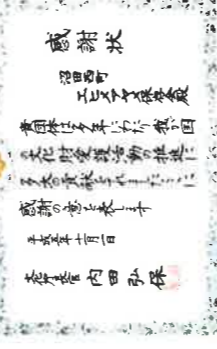 感謝状
沼田西町
エヒメアヤメ保存会殿
貴団体は多年にわたり我が国
の文化財愛護活動の推進に
多大の貢献をされましたので
感謝の意を表します
平成五年十一月一日
文化庁長官 内田弘保